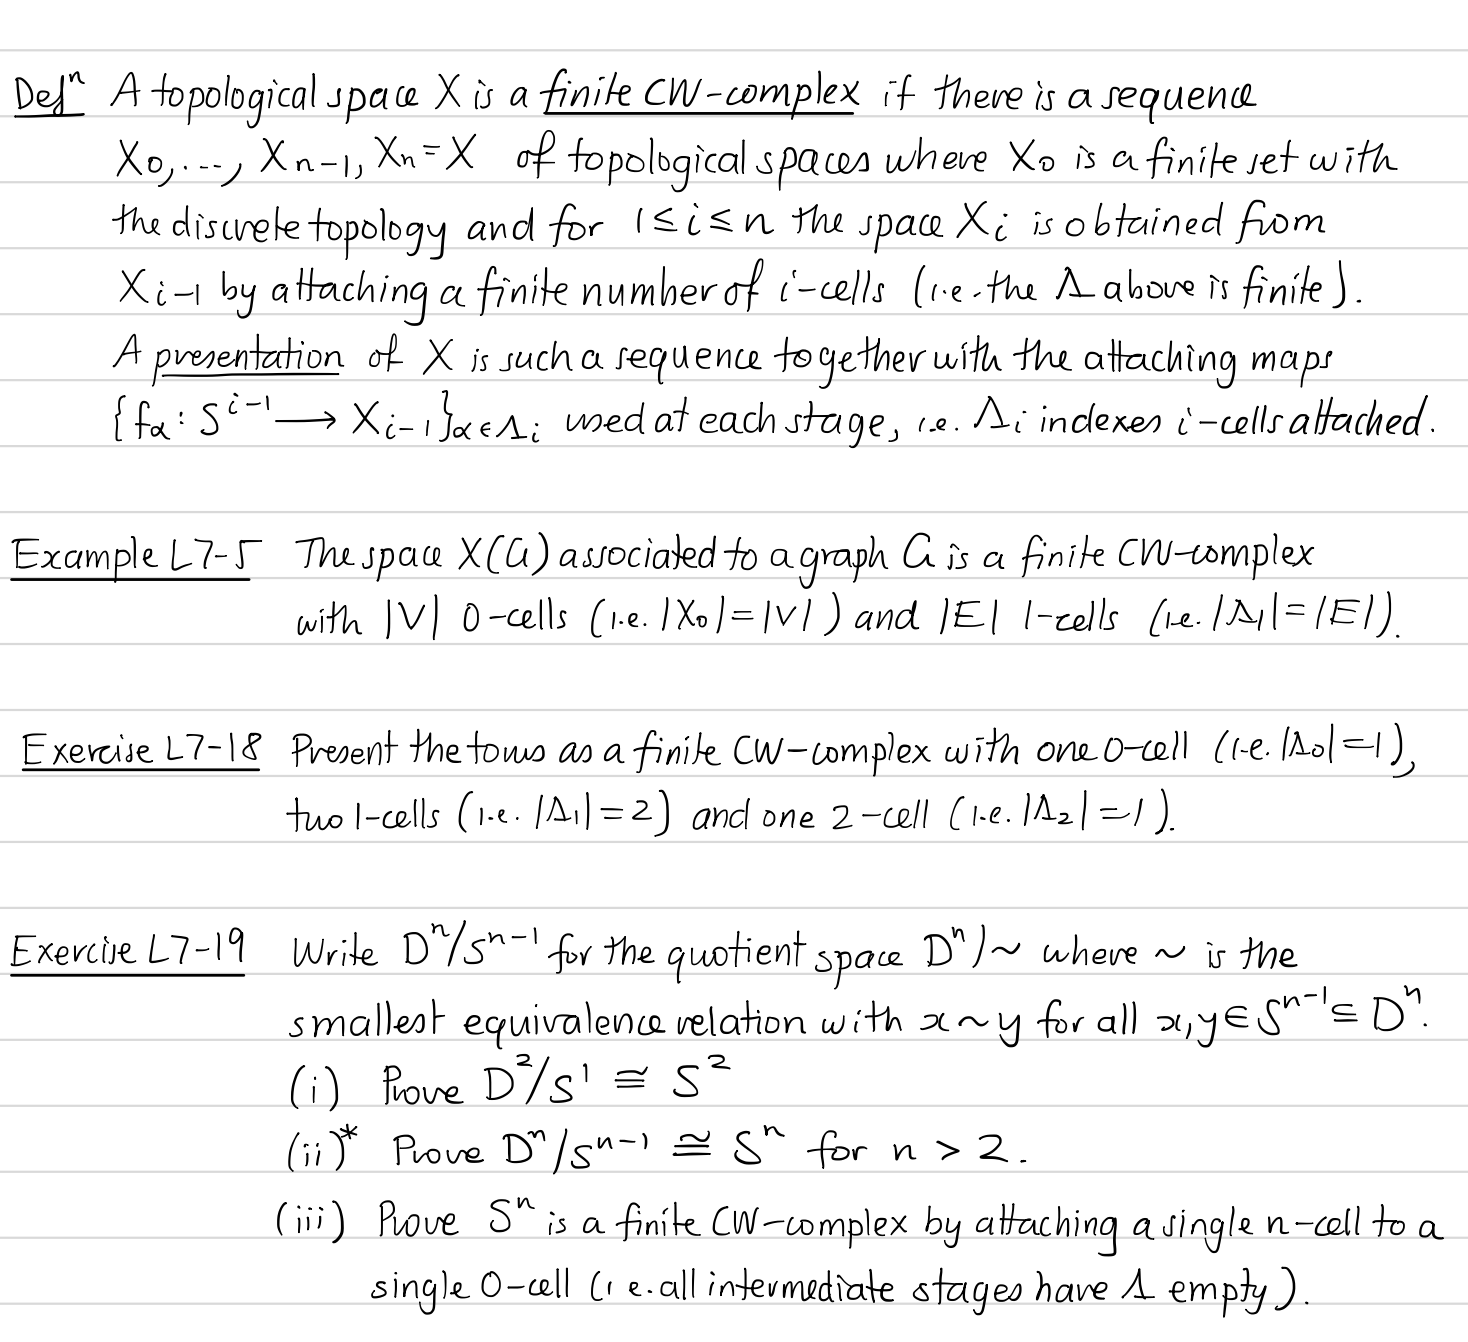 Defⁿ A topological space X is a finite CW-complex if there is a sequence
X₀, ..., Xₙ₋₁, Xₙ = X of topological spaces where X₀ is a finite set with
the discrete topology and for 1 ≤ i ≤ n the space Xᵢ is obtained from
Xᵢ₋₁ by attaching a finite number of i-cells (i.e. the Λ above is finite).
A presentation of X is such a sequence together with the attaching maps
{f_α : S^{i-1} ⟶ X_{i-1}}_{α∈Λ_i} used at each stage, i.e. Λᵢ indexes i-cells attached.
Example L7-5 The space X(G) associated to a graph G is a finite CW-complex
with |V| 0-cells (i.e. |X₀| = |V|) and |E| 1-cells (i.e. |Λ₁| = |E|).
Exercise L7-18 Present the torus as a finite CW-complex with one 0-cell (i.e. |Λ₀| = 1),
two 1-cells (i.e. |Λ₁| = 2) and one 2-cell (i.e. |Λ₂| = 1).
Exercise L7-19 Write Dⁿ/Sⁿ⁻¹ for the quotient space Dⁿ/~ where ~ is the
smallest equivalence relation with x ~ y for all x, y ∈ Sⁿ⁻¹ ⊆ Dⁿ.
(i) Prove D²/S¹ ≅ S²
(ii)* Prove Dⁿ/Sⁿ⁻¹ ≅ Sⁿ for n > 2.
(iii) Prove Sⁿ is a finite CW-complex by attaching a single n-cell to a
single 0-cell (i.e. all intermediate stages have Λ empty).